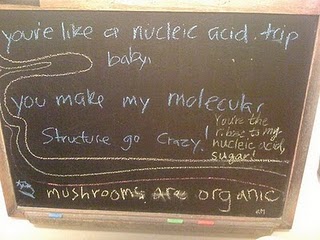 you're like a nucleic acid trip
baby,
you make my molecular
structure go crazy!
You're the
ribose to my
nucleic acid,
sugar!
mushrooms are organic